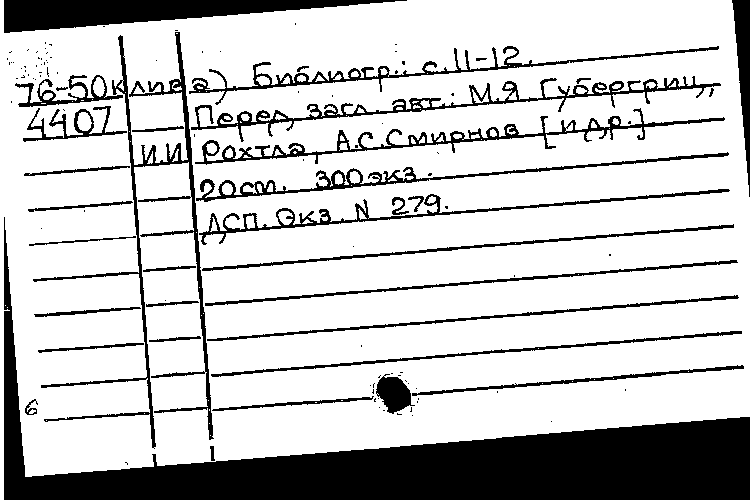 76-50клива). Библиогр.: с.11-12.
4407 Перед загл. авт.: М.Я Губергриц,
И.И Рохтла, А.С.Смирнов [и др.]
20см. 300экз.
ДСП. Экз. N 279.
6